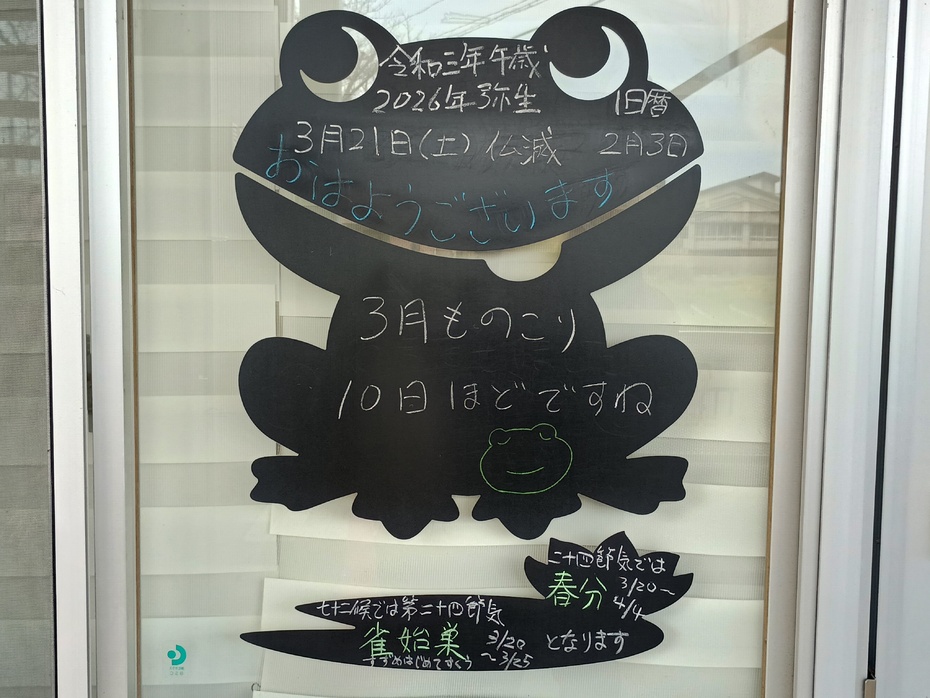 令和三年午歳
2026年弥生 旧暦
3月21日(土) 仏滅 2月3日
おはようございます
3月ものこり
10日ほどですね
二十四節気では
春分 3/20～4/4
七十二候では第二十四節気
雀始巣 3/20～3/25 となります
すずめはじめてすくう